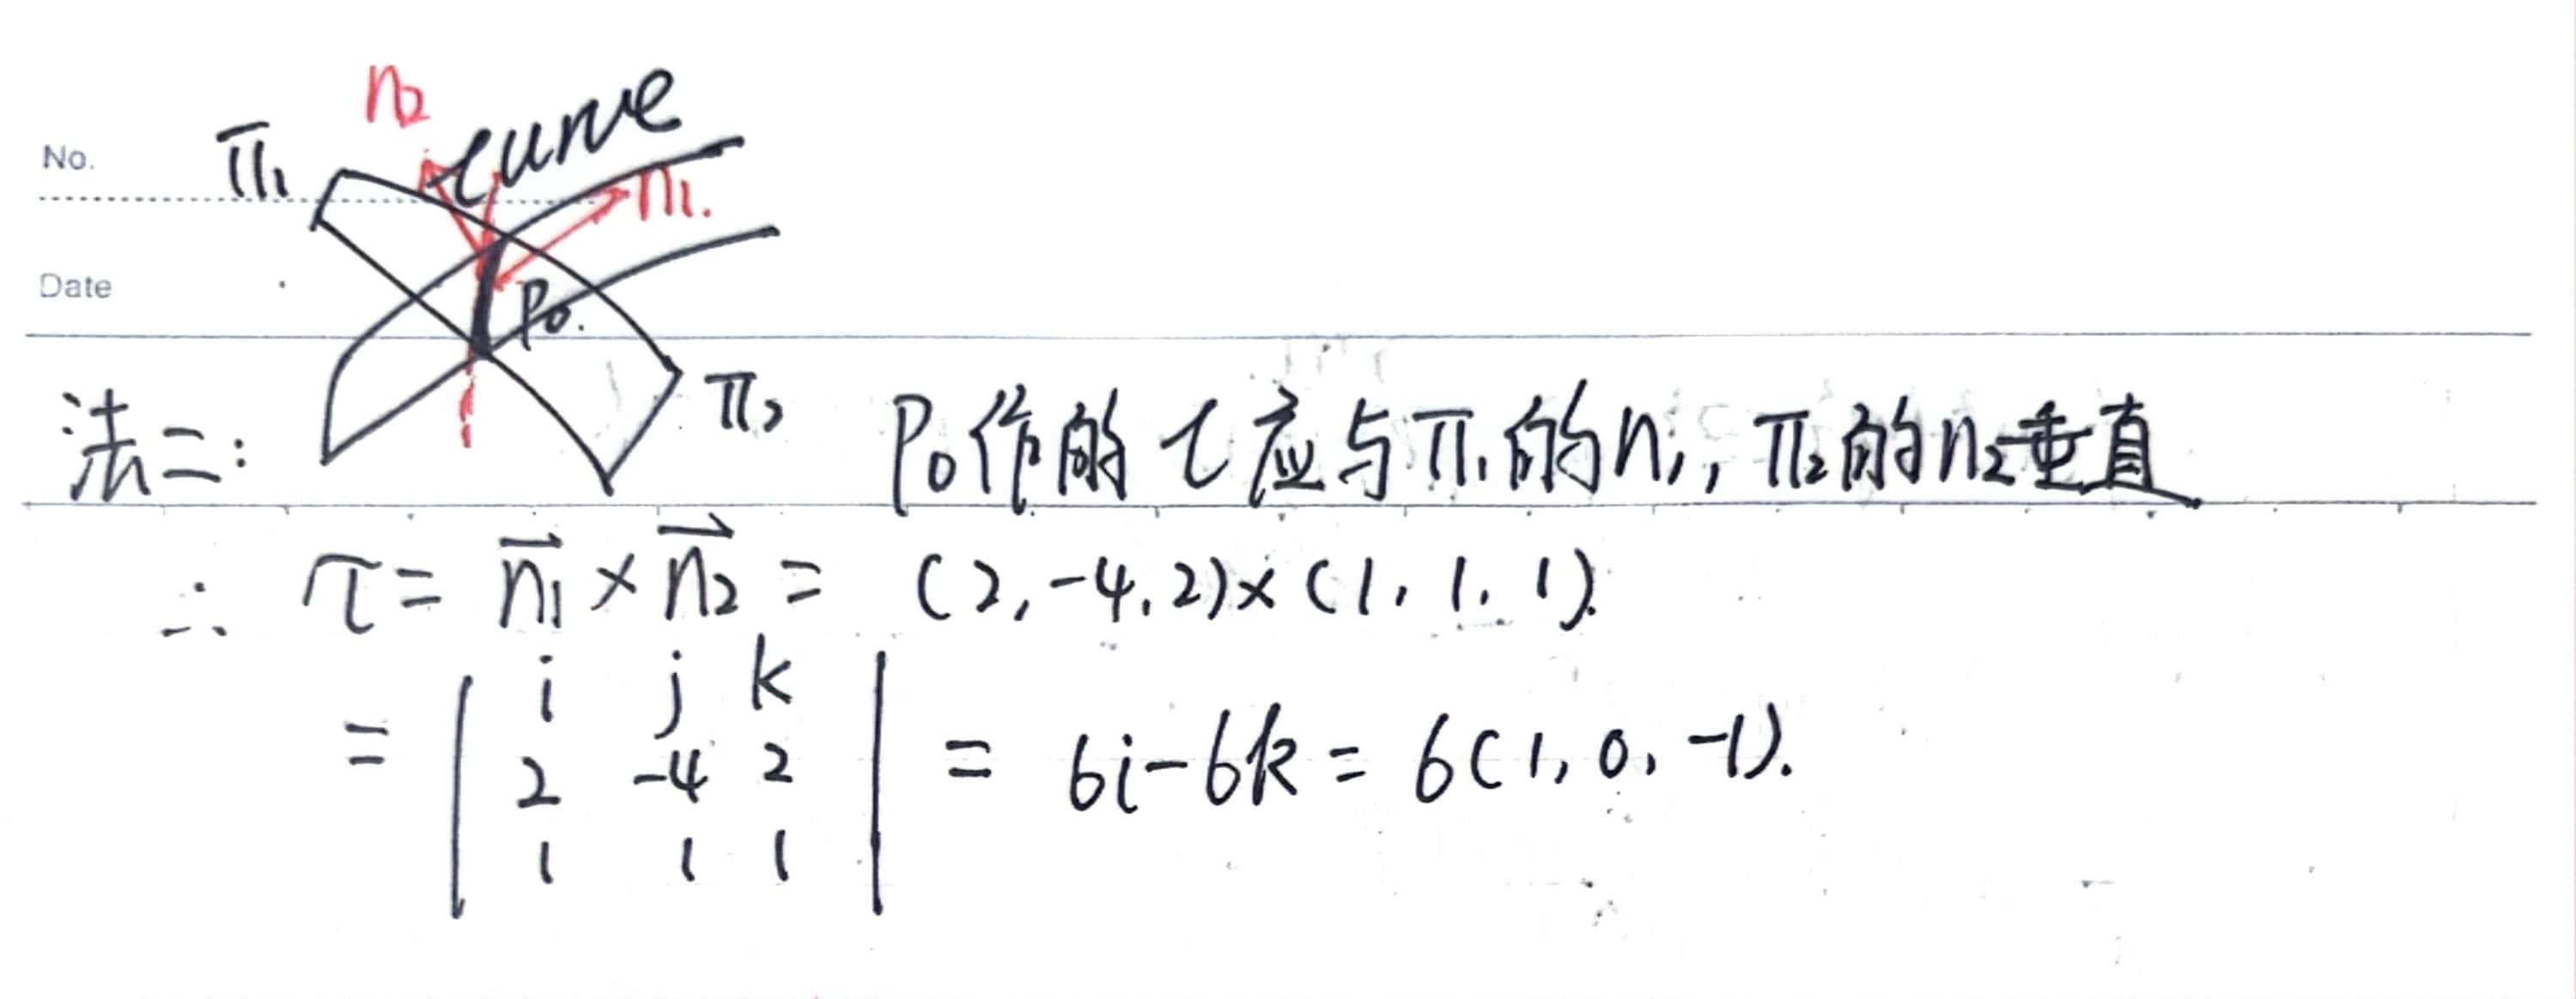 n2
curve
No.
π1
n1.
Date
P0.
π2
法二: P0作的τ应与π1的n1, π2的n2垂直
∴ τ = n1 × n2 = (2, -4, 2) × (1, 1, 1).
= | i j k
2 -4 2
1 1 1 | = 6i - 6k = 6(1, 0, -1).